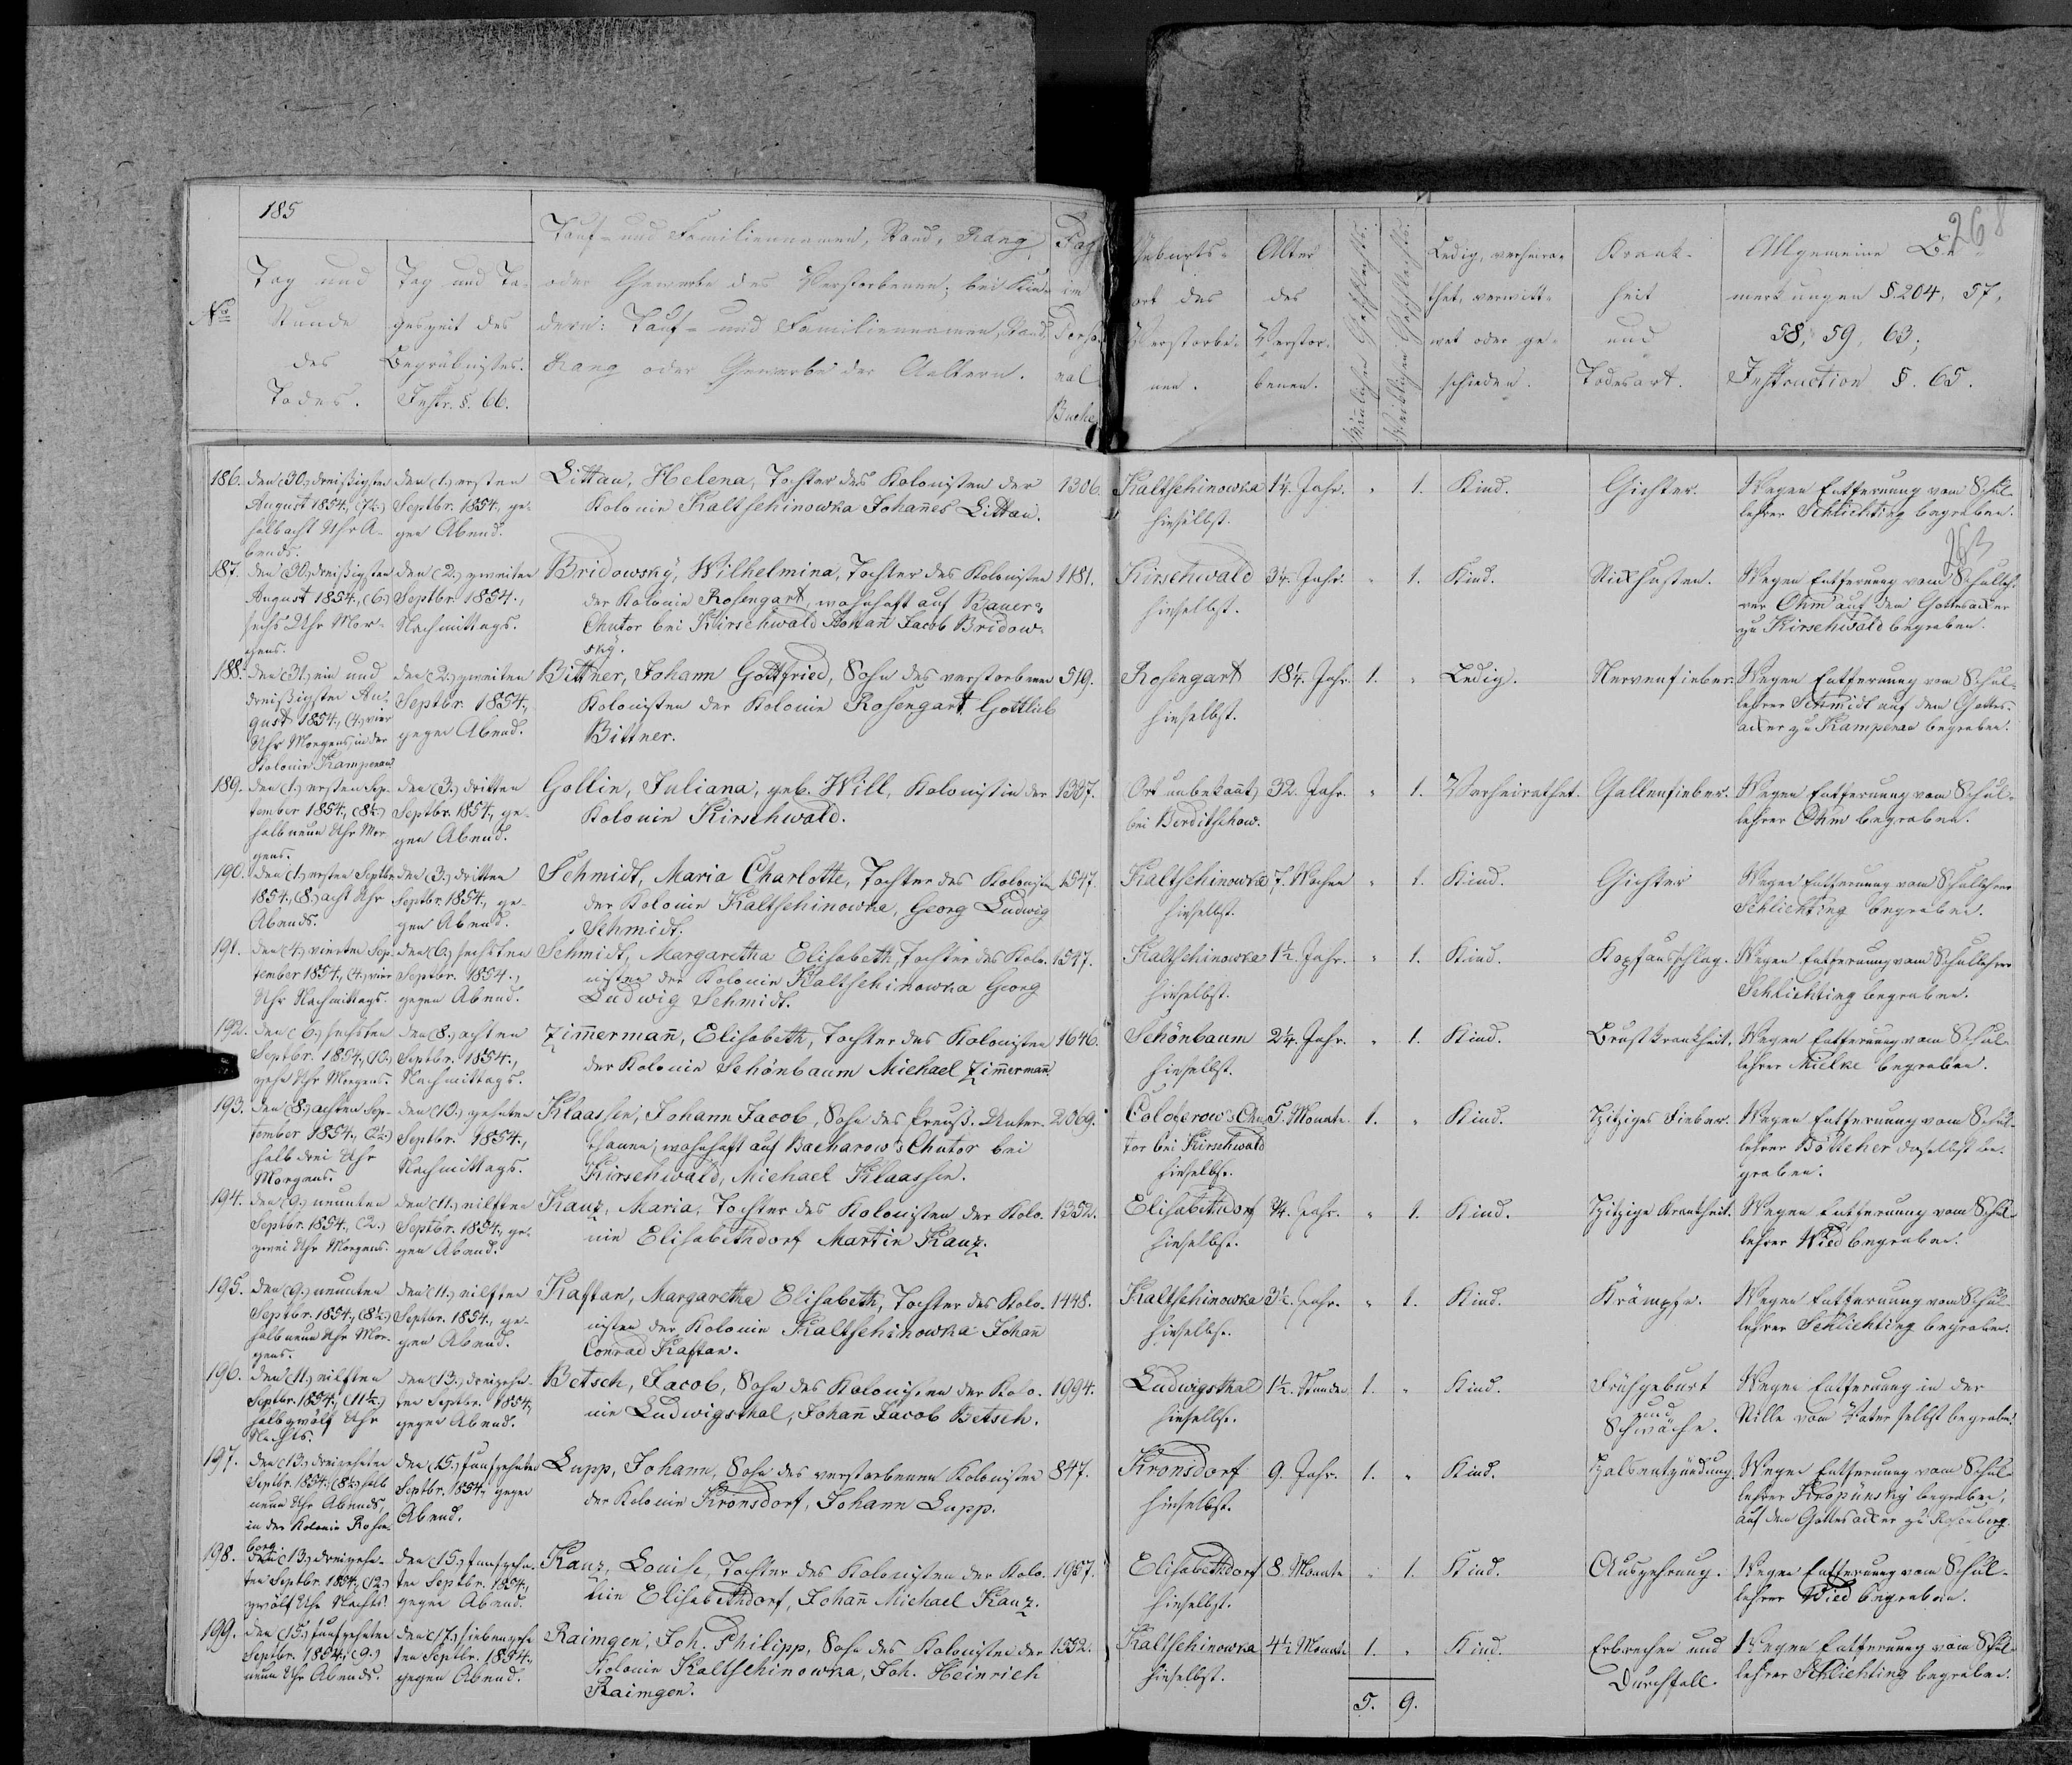 185
Nro
Tag und
Stunde
des
Todes.
Tag und Ta-
geszeit des
Begräbnißes.
Instr. §. 66.
Tauf- und Familiennamen, Stand, Rang
oder Gewerbe des Verstorbenen; bei Kin-
dern: Tauf- und Familiennamen, Stand,
Rang oder Gewerbe der Aeltern.
Pag
im
Perso-
nal
Buche
Geburts-
ort des
Verstorbe-
nen.
Alter
des
Verstor-
benen.
Männlichen Geschlechts.
Weiblichen Geschlechts.
Ledig, verheira-
thet, verwitt-
wet oder ge-
schieden.
Krank-
heit
und
Todesart.
Allgemeine Be-
merkungen § 204, 57,
58, 59, 63;
Instruction §. 65.
268
186.
den (30.) dreißigsten
August 1854., (7½.)
halb acht Uhr A-
bends.
den (1.) ersten
Septbr. 1854., ge-
gen Abend.
Littau, Helena, Tochter des Kolonisten der
Kolonie Kaltschinowka Johan̄es Littau.
1306.
Kaltschinowka
hieselbst.
1¼. Jahr.
" 1.
Kind.
Gichter.
Wegen Entfernung vom Schul-
lehrer Schlichting begraben.
187.
den (30.) dreißigsten
August 1854., (6.)
sechs Uhr Mor-
gens.
den (2.) zweiten
Septbr. 1854.,
Nachmittags.
Bridowsky, Wilhelmina, Tochter des Kolonisten
der Kolonie Rosengart, wohnhaft auf Bauer-
Chutor bei Kirschwald Johan̄ Jacob Bridow-
sky.
1181.
Kirschwald
hieselbst.
3¼. Jahr.
" 1.
Kind.
Stickhusten.
Wegen Entfernung vom Schulleh-
rer Ohm auf den Gottesacker
zu Kirschwald begraben.
188.
den (31.) ein und
dreißigsten Au-
gust 1854., (4.) vier
Uhr Morgens, in der
Kolonie Kampenau
den (2.) zweiten
Septbr. 1854.,
gegen Abend.
Bittner, Johann Gottfried, Sohn des verstorbenen
Kolonisten der Kolonie Rosengart Gottlieb
Bittner.
519.
Rosengart
hieselbst.
18¼. Jahr.
1. "
Ledig.
Nervenfieber.
Wegen Entfernung vom Schul-
lehrer Schmidt auf dem Gottes-
acker zu Kampenau begraben.
189.
den (1.) ersten Sep-
tember 1854., (8½.)
halb neun Uhr Mor-
gens.
den (3.) dritten
Septbr. 1854., ge-
gen Abend.
Gollin, Juliana, geb. Will, Kolonistin der
Kolonie Kirschwald.
1337.
Ort unbekan̄t,
bei Berditschow.
32. Jahr.
" 1.
Verheirathet.
Gallenfieber.
Wegen Entfernung vom Schul-
lehrer Ohm begraben.
190.
den (1.) ersten Septbr.
1854., (8.) acht Uhr
Abends.
den (3.) dritten
Septbr. 1854., ge-
gen Abend.
Schmidt, Maria Charlotte, Tochter des Kolonisten
der Kolonie Kaltschinowka, Georg Ludwig
Schmidt.
1547.
Kaltschinowka
hieselbst.
7. Wochen
" 1.
Kind.
Gichter
Wegen Entfernung vom Schullehrer
Schlichting begraben.
191.
den (4.) vierten Sep-
tember 1854., (4.) vier
Uhr Nachmittags.
den (6.) sechsten
Septbr. 1854.,
gegen Abend.
Schmidt, Margaretha Elisabeth, Tochter des Kolo-
nisten der Kolonie Kaltschinowka Georg
Ludwig Schmidt.
1547.
Kaltschinowka
hieselbst.
1½. Jahr.
" 1.
Kind.
Kopfausschlag.
Wegen Entfernung vom Schullehrer
Schlichting begraben.
192.
den (6.) sechsten
Septbr. 1854., (10.)
zehn Uhr Morgens.
den (8.) achten
Septbr. 1854.,
Nachmittags.
Zim̄erman̄, Elisabeth, Tochter des Kolonisten
der Kolonie Schönbaum Michael Zim̄erman̄.
1646.
Schönbaum
hieselbst.
2¼. Jahr.
" 1.
Kind.
Brustkrankheit.
Wegen Entfernung vom Schul-
lehrer Mielke begraben.
193.
den (8.) achten Sep-
tember 1854., (2½.)
halb drei Uhr
Morgens.
den (10.) zehnten
Septbr. 1854.,
Nachmittags.
Klaassen, Johann Jacob, Sohn des Preuß. Unter-
thanen, wohnhaft auf Bacharow's Chutor bei
Kirschwald, Michael Klaassen.
2069.
Chu-
tor bei Kirschwald
hieselbst.
5. Monate.
1. "
Kind.
Hitziges Fieber.
Wegen Entfernung vom Schul-
lehrer Böttcher daselbst be-
graben.
194.
den (9.) neunten
Septbr. 1854., (2.)
zwei Uhr Morgens.
den (11.) eilften
Septbr. 1854., ge-
gen Abend.
Kanz, Maria, Tochter des Kolonisten der Kolo-
nie Elisabethdorf Martin Kanz.
1352.
Elisabethdorf
hieselbst.
¾. Jahr.
" 1.
Kind.
Hitzige Krankheit.
Wegen Entfernung vom Schul-
lehrer Wied begraben.
195.
den (9.) neunten
Septbr. 1854., (8½.)
halb neun Uhr Mor-
gens.
den (11.) eilften
Septbr. 1854., ge-
gen Abend.
Kaftan, Margaretha Elisabeth, Tochter des Kolo-
nisten der Kolonie Kaltschinowka Johan̄
Conrad Kaftan.
1448.
Kaltschinowka
hieselbst.
3½. Jahr.
" 1.
Kind.
Krämpfe.
Wegen Entfernung vom Schul-
lehrer Schlichting begraben.
196.
den (11.) eilften
Septbr. 1854., (11½.)
halb zwölf Uhr
Nachts.
den (13.) dreizehn-
ten Septbr. 1854.,
gegen Abend.
Betsch, Jacob, Sohn des Kolonisten der Kolo-
nie Ludwigsthal, Johan̄ Jacob Betsch.
1994.
Ludwigsthal
hieselbst.
1½. Stunden
1. "
Kind.
Frühgeburt
und
Schwäche.
Wegen Entfernung in der
Stille vom Vater selbst begraben.
197.
den (13.) dreizehnten
Septbr. 1854., (8½.) halb
neun Uhr Abends,
in der Kolonie Rosen-
berg.
den (15.) funfzehnten
Septbr. 1854., gegen
Abend.
Lupp, Johann, Sohn des verstorbenen Kolonisten
der Kolonie Kronsdorf, Johann Lupp.
847.
Kronsdorf
hieselbst.
9. Jahr.
1. "
Kind.
Halsentzündung.
Wegen Entfernung vom Schul-
lehrer begraben,
auf den Gottesacker zu Rosenberg.
198.
den (13.) dreizehn-
ten Septbr. 1854., (12.)
zwölf Uhr Nachts.
den (15.) funfzehn-
ten Septbr. 1854.,
gegen Abend.
Kanz, Louise, Tochter des Kolonisten der Kolo-
nie Elisabethdorf, Johan̄ Michael Kanz.
1957.
Elisabethdorf
hieselbst.
8. Monate
" 1.
Kind.
Auszehrung.
Wegen Entfernung vom Schul-
lehrer Wied begraben.
199.
den (15.) funfzehnten
Septbr. 1854., (9.)
neun Uhr Abends.
den (17.) siebenzehn-
ten Septbr. 1854.,
gegen Abend.
Raimgen, Joh. Philipp, Sohn des Kolonisten der
Kolonie Kaltschinowka, Joh. Heinrich
Raimgen.
1552.
Kaltschinowka
hieselbst.
4½ Monate
1. "
Kind.
Erbrechen und
Durchfall.
Wegen Entfernung vom Schul-
lehrer Schlichting begraben.
5. 9.